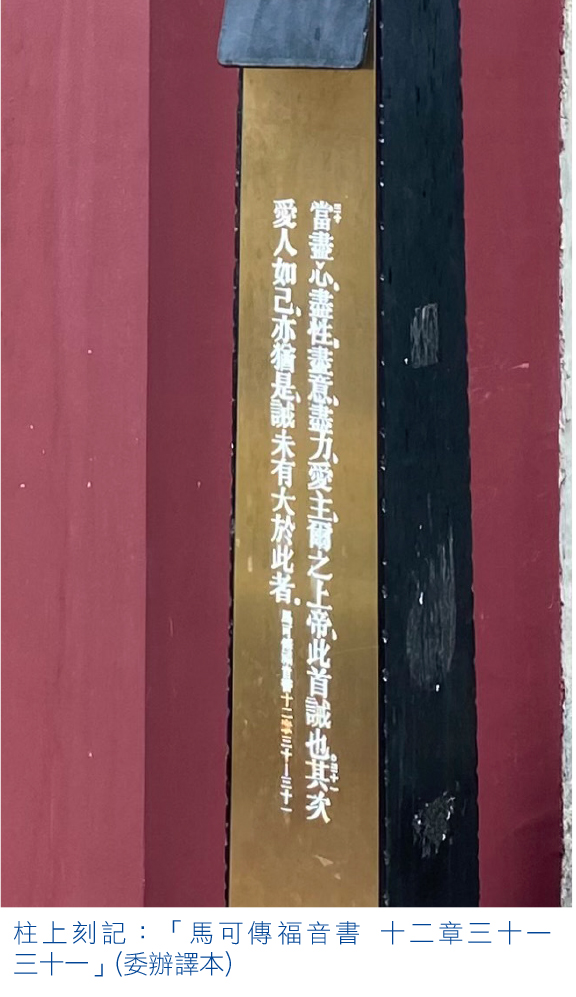 三十當盡心、盡性、盡意、盡力、愛主、爾之上帝、此首誡也。三十一其次
愛人如己、亦猶是、誡未有大於此者。馬可傳福音書十二章三十—三十一
柱上刻記：「馬可傳福音書 十二章三十一
三十一」(委辦譯本)